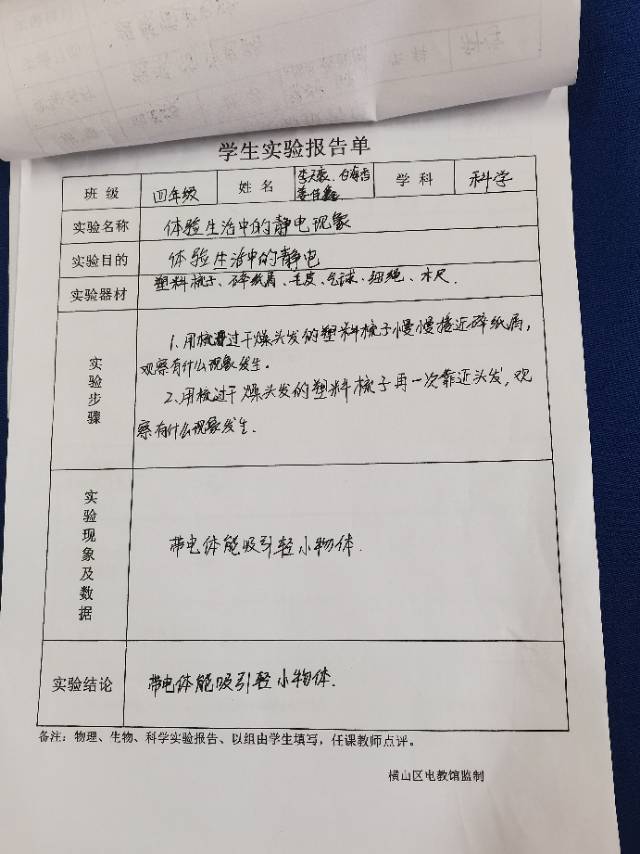 学生实验报告单
班级 四年级 姓名 学科 科学
实验名称 体验生活中的静电现象
实验目的 体验生活中的静电
实验器材 塑料梳子、碎纸屑、毛皮、气球、细绳、木尺.
实验步骤
1.用梳过干燥头发的塑料梳子慢慢接近碎纸屑,
观察有什么现象发生。
2.用梳过干燥头发的塑料梳子再一次靠近头发,观
察有什么现象发生.
实验现象及数据
带电体能吸引轻小物体.
实验结论 带电体能吸引轻小物体.
备注:物理、生物、科学实验报告、以组由学生填写,任课教师点评。
横山区电教馆监制